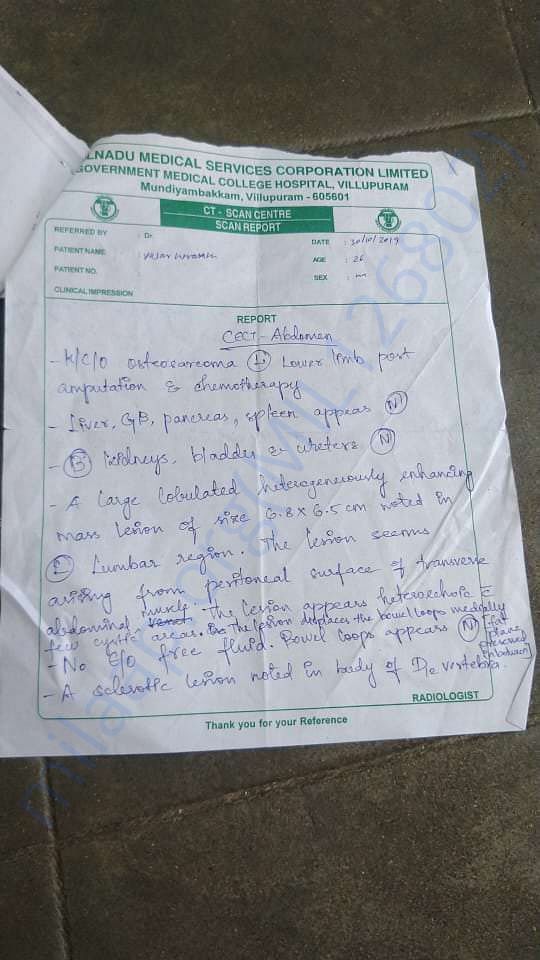 LNADU MEDICAL SERVICES CORPORATION LIMITED
GOVERNMENT MEDICAL COLLEGE HOSPITAL, VILLUPURAM
Mundiyambakkam, Villupuram - 605601
CT - SCAN CENTRE
SCAN REPORT
REFERRED BY : Dr.
DATE : 30/10/2019
PATIENT NAME :
AGE : 26
PATIENT NO.
SEX : m
CLINICAL IMPRESSION
REPORT
CECT - Abdomen
- K/C/O osteosarcoma (L) Lower limb post
amputation & chemotherapy
- Liver, GB, pancreas, spleen appears (N)
- (B) kidneys, bladder & ureters (N)
- A large lobulated heterogeneously enhancing
mass lesion of size 6.8 x 6.5 cm noted in
Lumbar region. The lesion seems
arising from peritoneal surface of transverse
abdominal muscle. The lesion appears heteroechoic c̄
few cystic areas. The lesion displaces the bowel loops medially
[fat plane preserved inbetween]
- No E/O free fluid. Bowel loops appears (N)
- A sclerotic lesion noted in body of vertebra.
RADIOLOGIST
Thank you for your Reference
milaap.org/MIL1268021